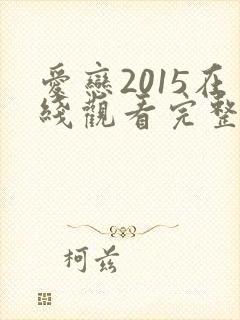 愛戀2015在
綫觀看完整
柯茲